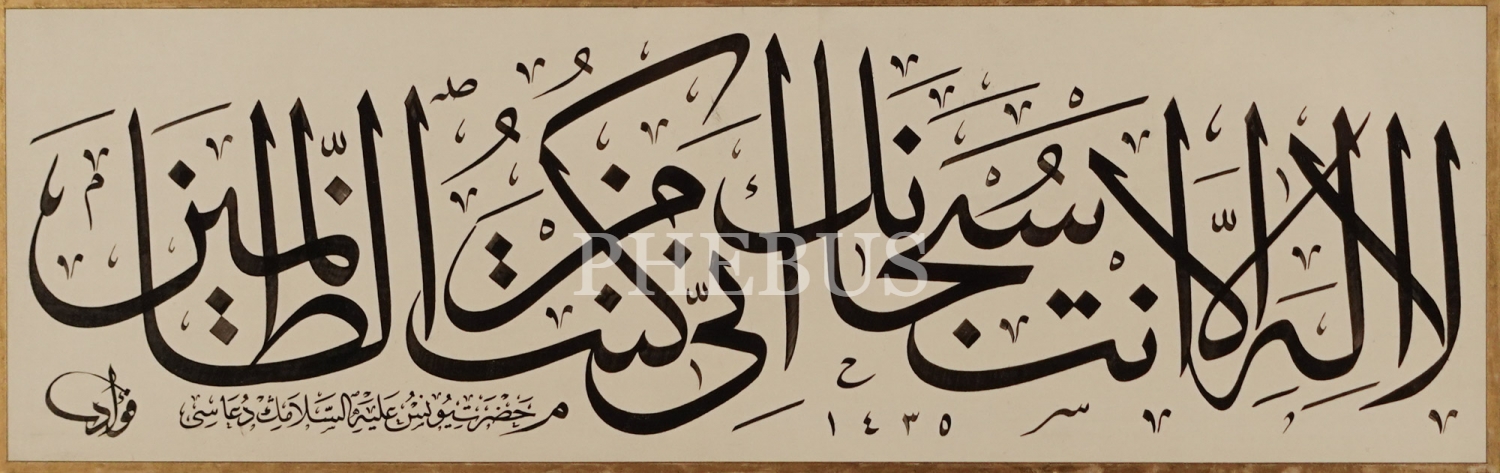 لا اله الا انت سبحانك انى كنت من الظالمين
حضرت يونس عليه السلامك دعاسى
١٤٣٥
فؤاد
PHEBUS